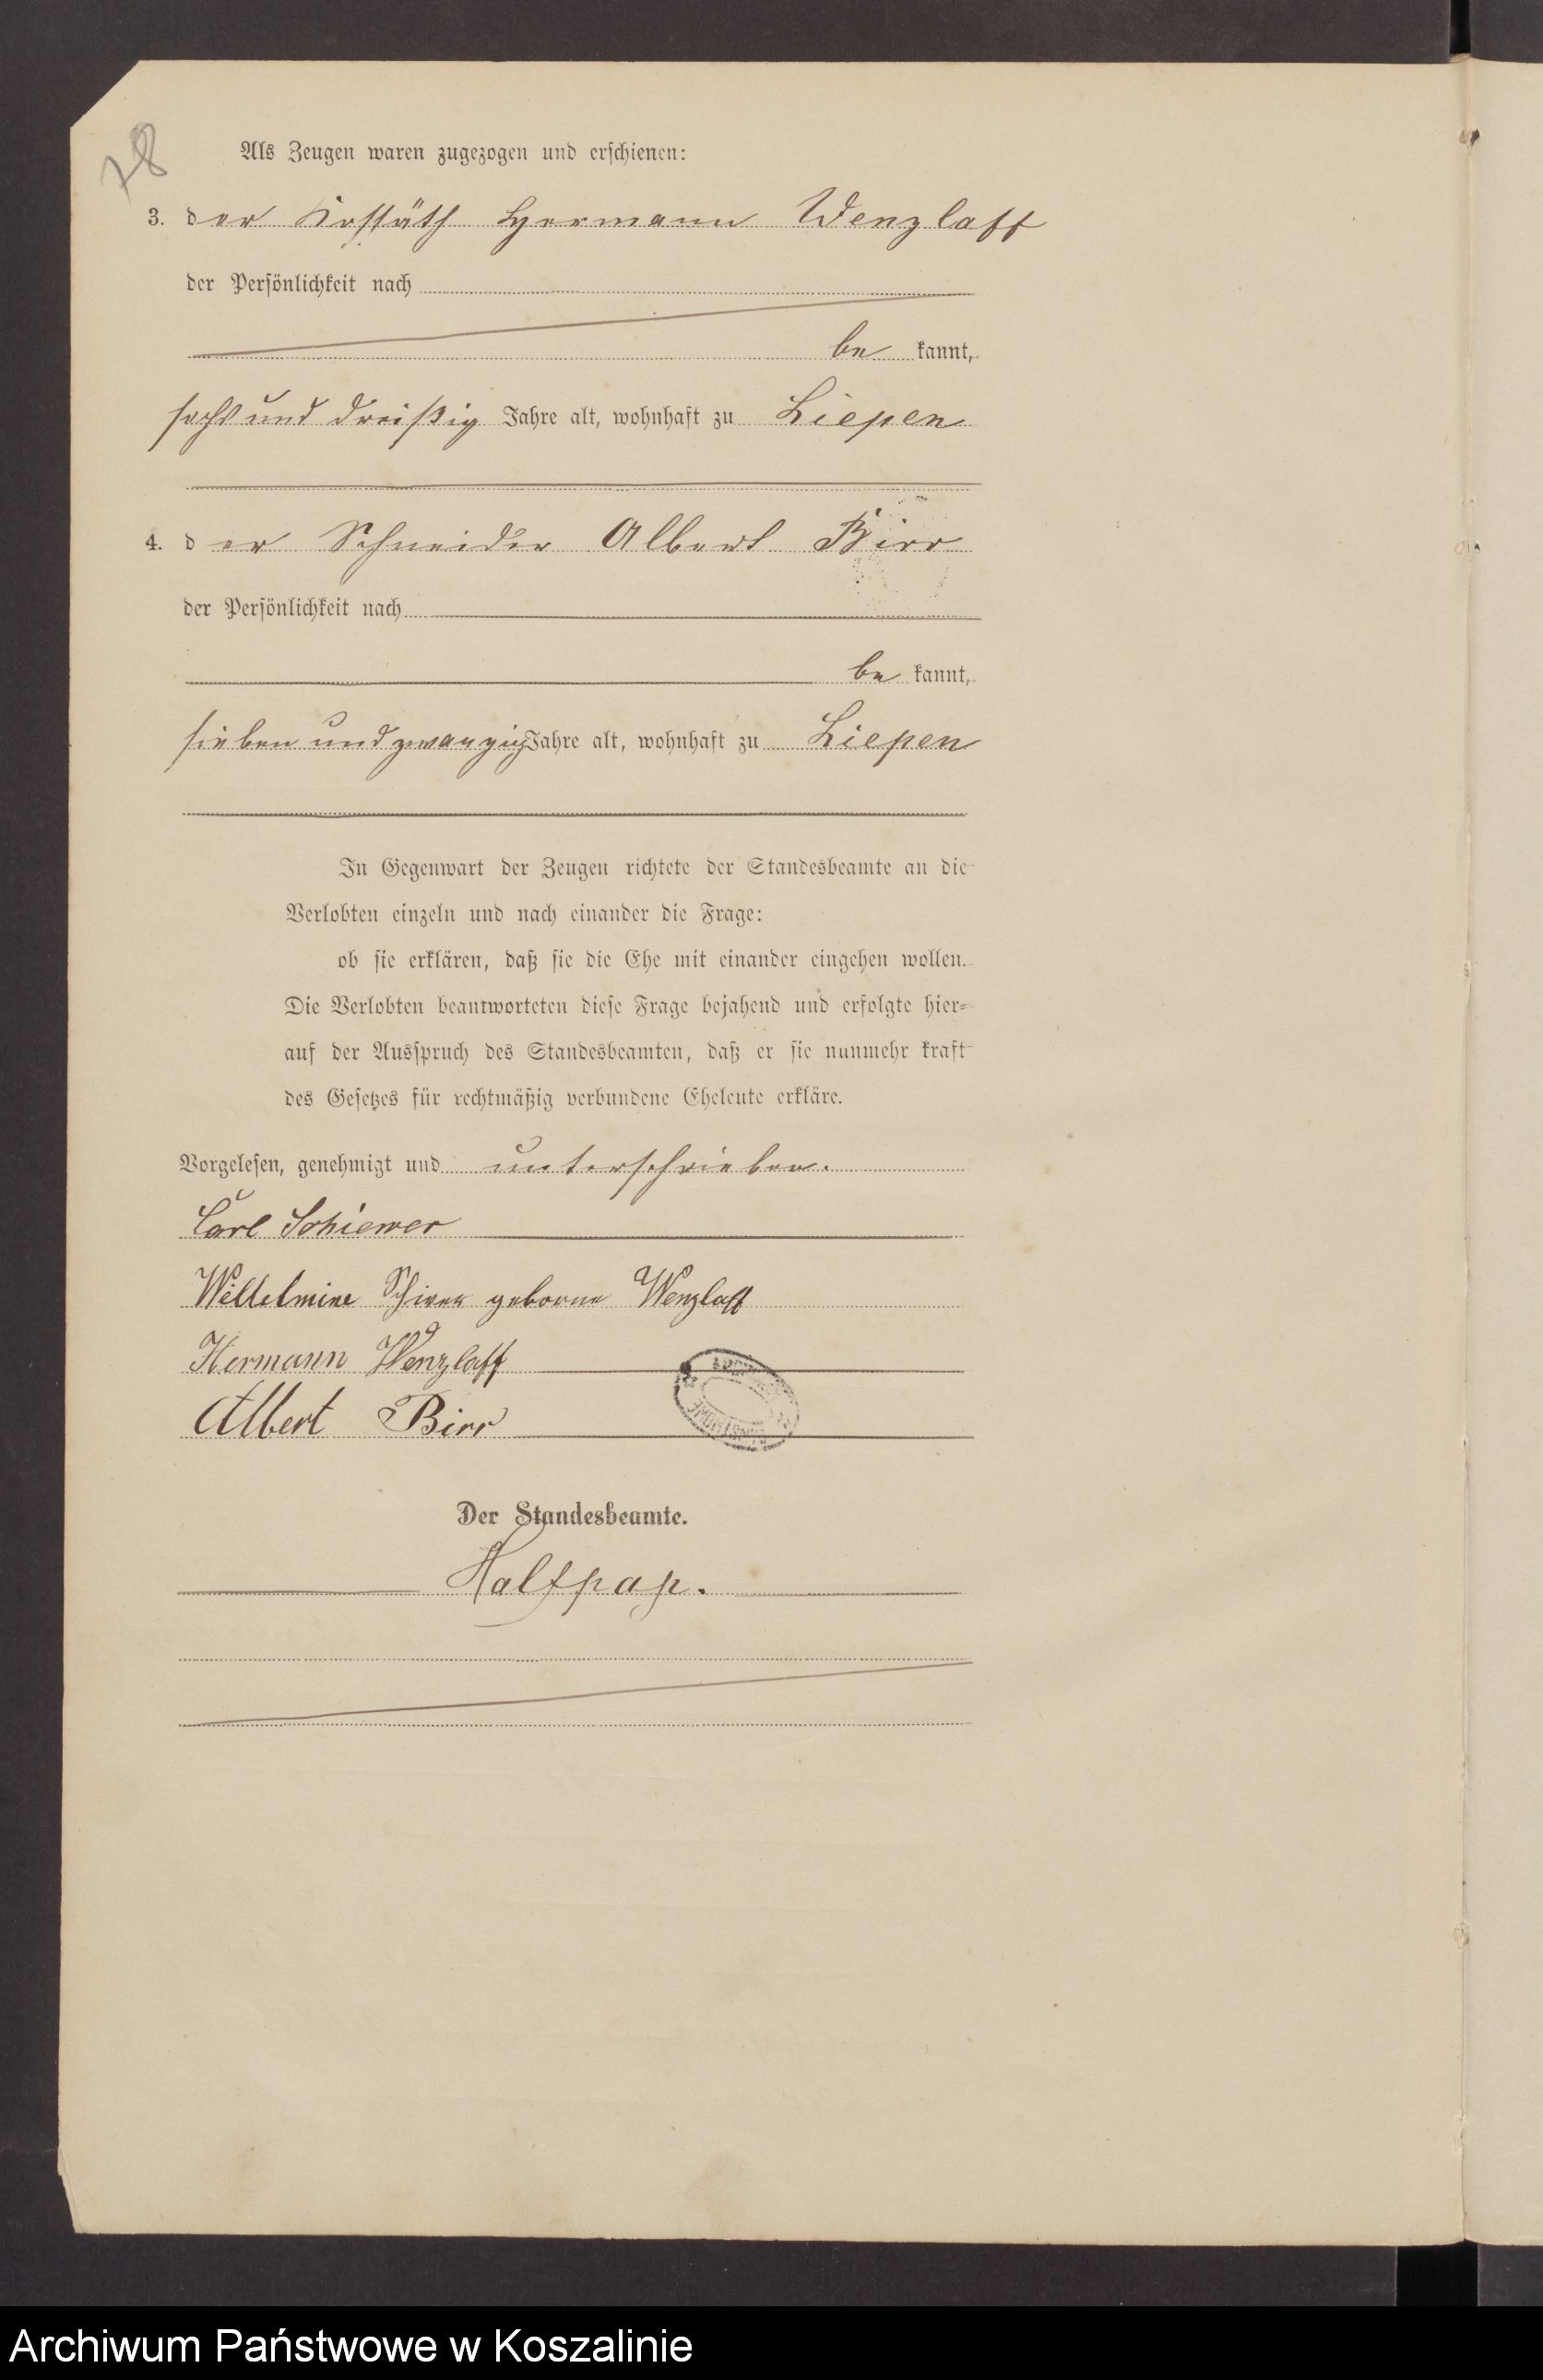 78
Als Zeugen waren zugezogen und erschienen:
3. der Kossäth Hermann Wenzlaff
der Persönlichkeit nach
be kannt,
sechs und dreißig Jahre alt, wohnhaft zu Liepen
4. der Schneider Albert Birr
der Persönlichkeit nach
be kannt,
sieben und zwanzig Jahre alt, wohnhaft zu Liepen
In Gegenwart der Zeugen richtete der Standesbeamte an die
Verlobten einzeln und nach einander die Frage:
ob sie erklären, daß sie die Ehe mit einander eingehen wollen.
Die Verlobten beantworteten diese Frage bejahend und erfolgte hier-
auf der Ausspruch des Standesbeamten, daß er sie nunmehr kraft
des Gesetzes für rechtmäßig verbundene Eheleute erkläre.
Vorgelesen, genehmigt und unterschrieben.
Carl Schiewer
geborne Wenzlaff
Hermann Wenzlaff
Albert Birr
Der Standesbeamte.
Halfpap.
Archiwum Państwowe w Koszalinie